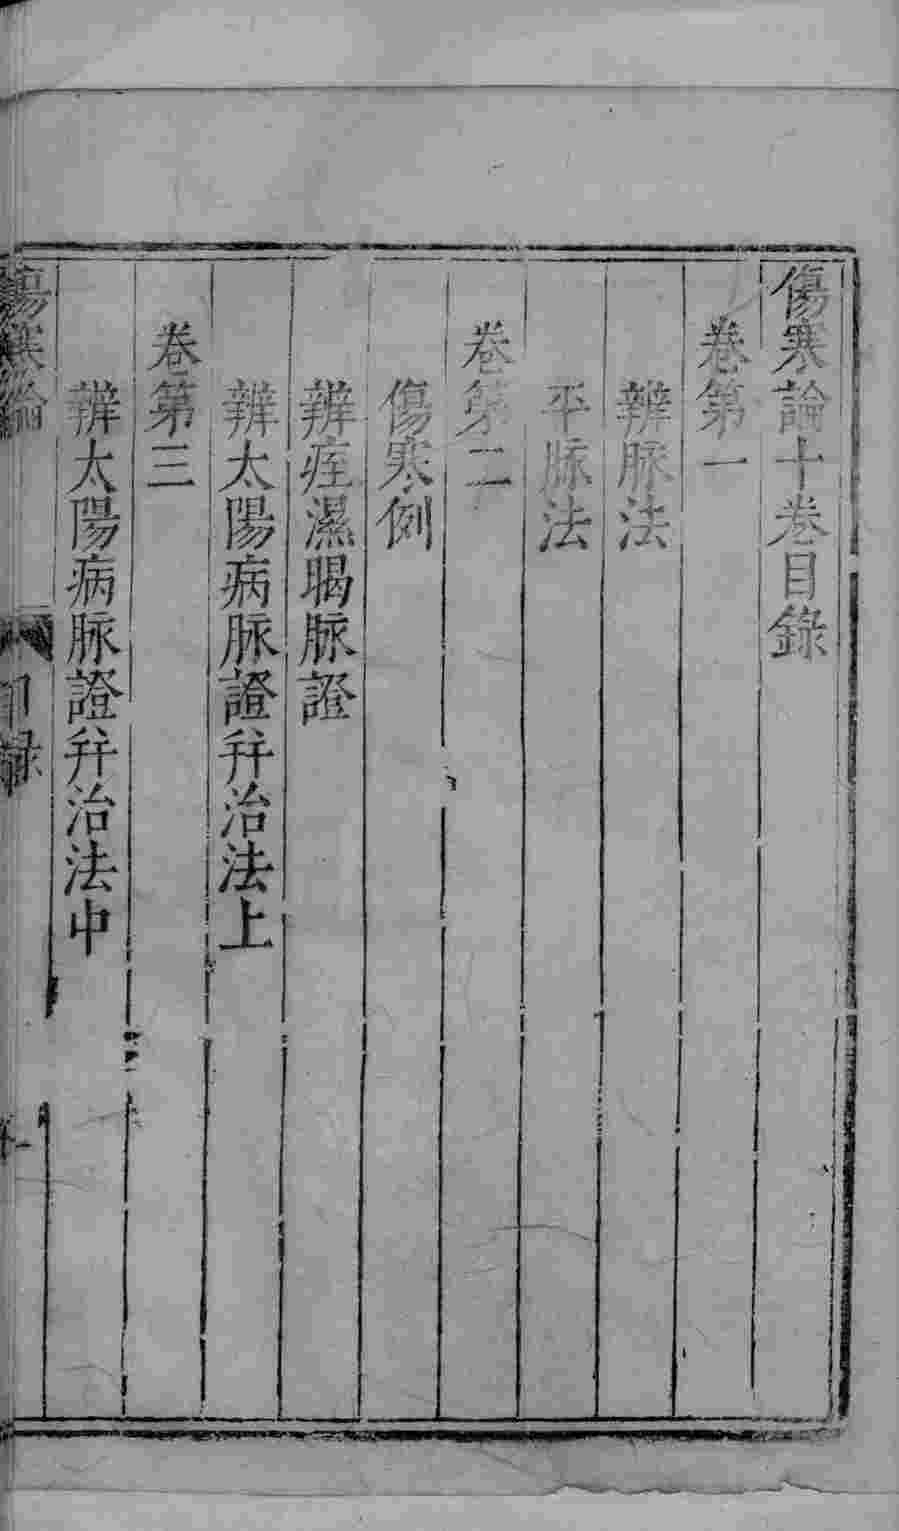 傷寒論十卷目錄
卷第一
辨脉法
平脉法
卷第二
傷寒例
辨痓濕暍脉證
辨太陽病脉證并治法上
卷第三
辨太陽病脉證并治法中
傷寒論 目録